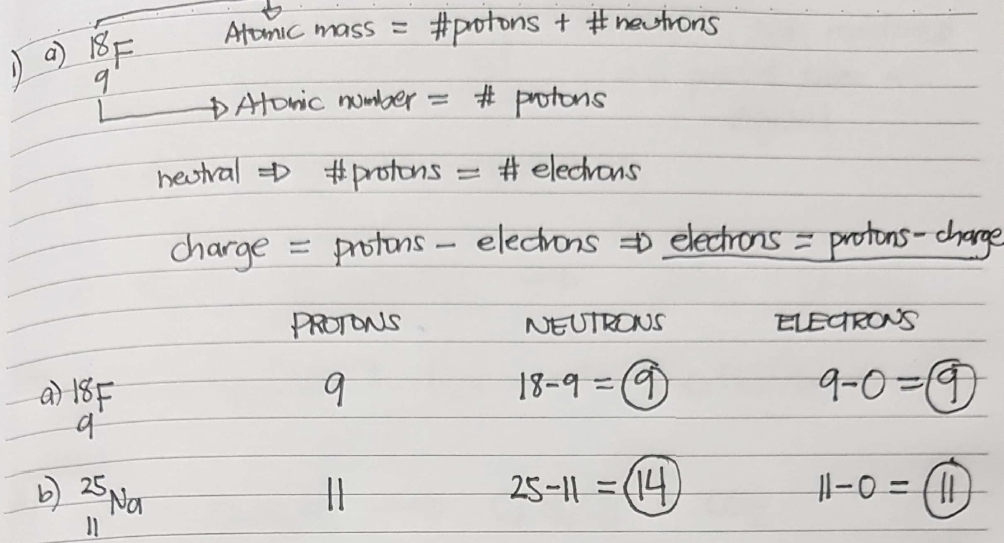 1) a) ¹⁸₉F Atomic mass = #protons + #neutrons
Atomic number = # protons
neutral ⇒ #protons = # electrons
charge = protons - electrons ⇒ electrons = protons - charge
PROTONS NEUTRONS ELECTRONS
a) ¹⁸₉F 9 18-9 = 9 9-0 = 9
b) ²⁵₁₁Na 11 25-11 = 14 11-0 = 11